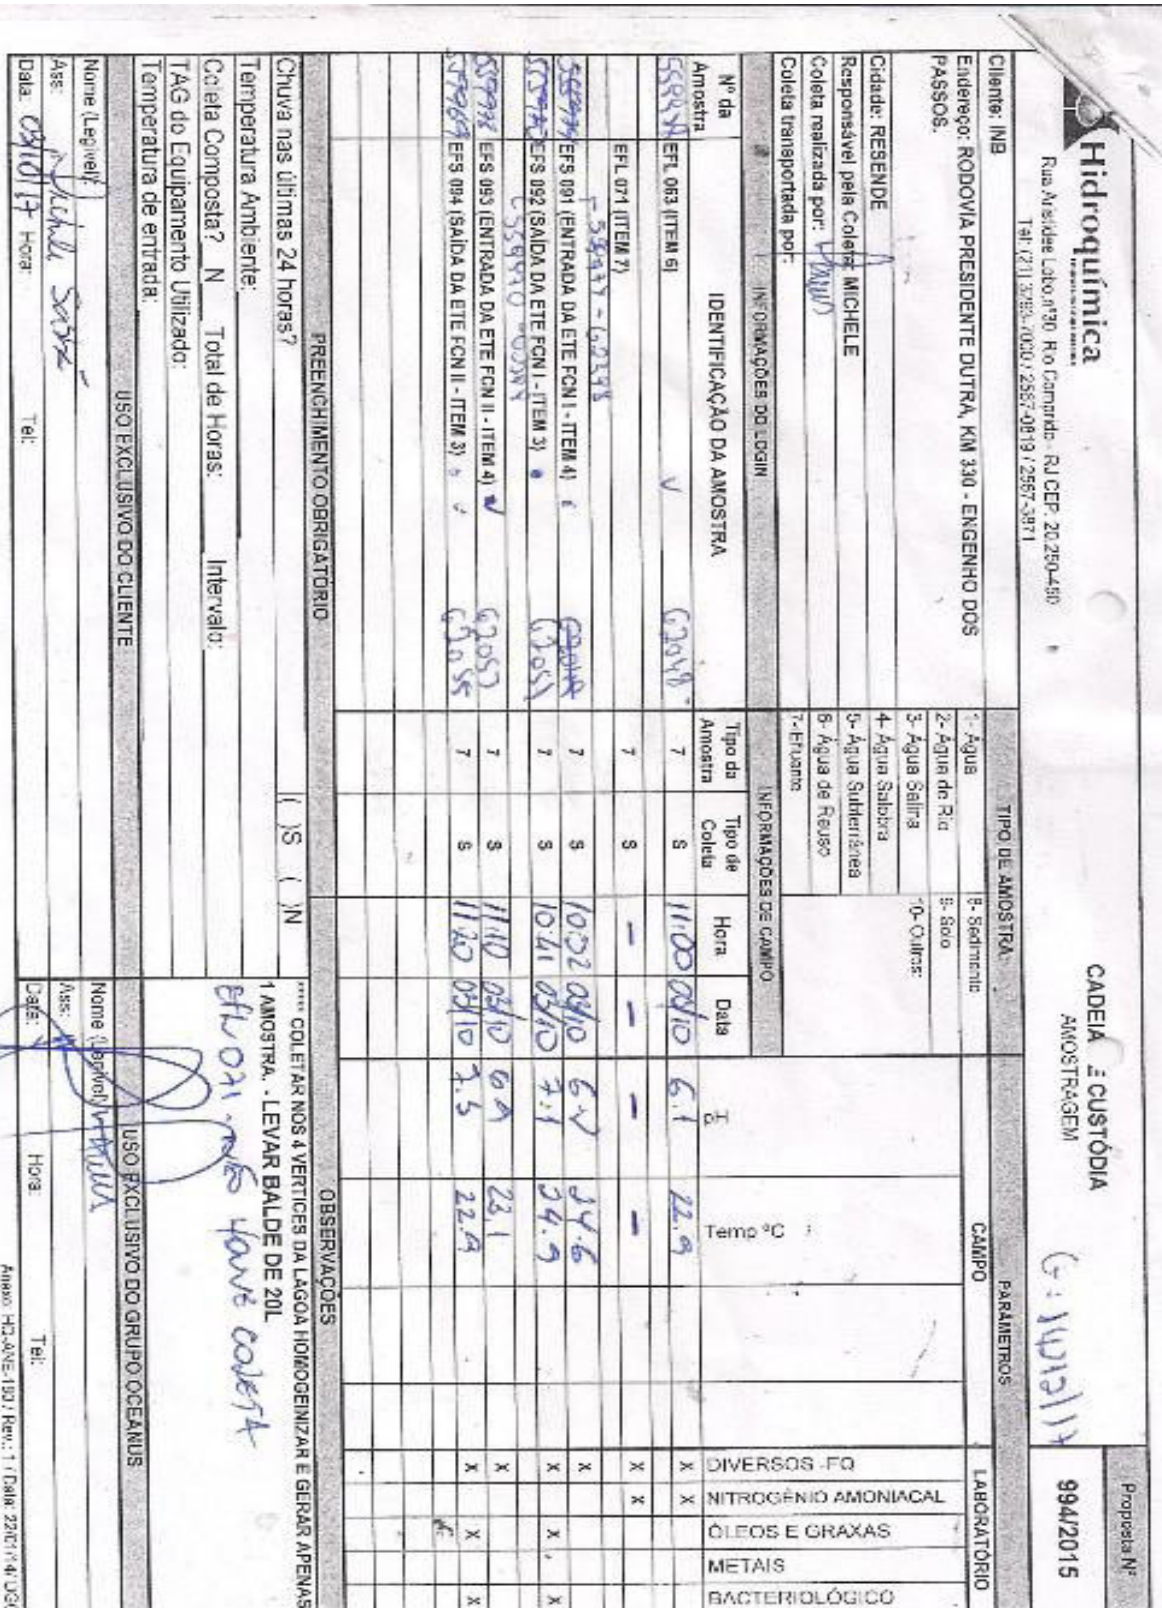 Hidroquímica
Rua Aristides Lobo, nº30 Rio Comprido - RJ CEP: 20.250-450
Tel: (21) 3293-7000 / 2567-0819 / 2567-3871
CADEIA E CUSTÓDIA
AMOSTRAGEM
G: 14212/17
Proposta Nº
994/2015
Cliente: INB
Endereço: RODOVIA PRESIDENTE DUTRA, KM 330 - ENGENHO DOS
PASSOS.
Cidade: RESENDE
Responsável pela Coleta: MICHELE
Coleta realizada por:
Coleta transportada por:
TIPO DE AMOSTRA
1- Água
2- Água de Rio
3- Água Salina
4- Água Salobra
5- Água Subterrânea
6- Água de Reuso
7- Efluente
8- Sedimento
9- Solo
10- Outros:
PARÂMETROS
CAMPO
LABORATÓRIO
INFORMAÇÕES DO LOGIN
INFORMAÇÕES DE CAMPO
Nº da Amostra
IDENTIFICAÇÃO DA AMOSTRA
Tipo da Amostra
Tipo de Coleta
Hora
Data
pH
Temp ºC
DIVERSOS -FQ
NITROGÊNIO AMONIACAL
ÓLEOS E GRAXAS
METAIS
BACTERIOLÓGICO
EFL 063 (ITEM 6) 62048 7 S 11:00 03/10 6.1 22.9 X X
EFL 071 (ITEM 7) 7 S - - - - X X
EFS 091 (ENTRADA DA ETE FCN I - ITEM 4) 7 S 10:52 03/10 24.6 X
EFS 092 (SAÍDA DA ETE FCN I - ITEM 3) 62051 7 S 10:41 03/10 7.1 24.9 X X X
EFS 093 (ENTRADA DA ETE FCN II - ITEM 4) 7 S 11:10 03/10 6.9 23.1 X
EFS 094 (SAÍDA DA ETE FCN II - ITEM 3) 7 S 11:20 03/10 7.3 22.9 X X X
PREENCHIMENTO OBRIGATÓRIO
OBSERVAÇÕES
Chuva nas últimas 24 horas? ( )S ( )N
Temperatura Ambiente:
Coleta Composta? N Total de Horas: Intervalo:
TAG do Equipamento Utilizado:
Temperatura de entrada:
**** COLETAR NOS 4 VERTICES DA LAGOA HOMOGEINIZAR E GERAR APENAS
1 AMOSTRA. - LEVAR BALDE DE 20L
EFL 071 - NÃO HOUVE COLETA
USO EXCLUSIVO DO CLIENTE
Nome (Legível):
Ass:
Data: Hora: Tel:
USO EXCLUSIVO DO GRUPO OCEANUS
Nome (Legível)
Ass:
Data: Hora: Tel:
Anexo: HQ-ANE-180 / Rev.: 1 / Data: 22/01/14/